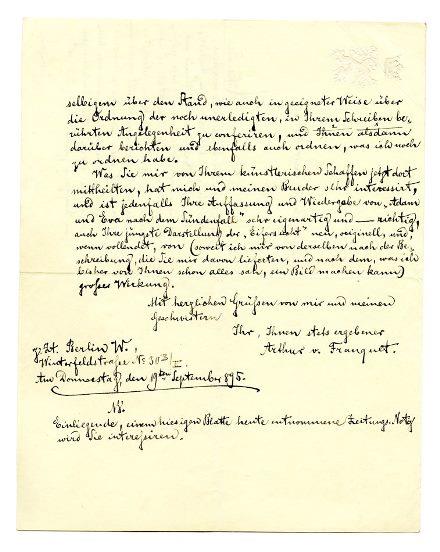 selbigem über den Stand, wie auch in geeigneter Weise über
die Ordnung der noch unerledigten, in Ihrem Schreiben be-
rührten Angelegenheit zu conferiren, und Ihnen alsdann
darüber berichten und ebenfalls auch ordnen, was ich noch
zu ordnen habe.
Was Sie mir von Ihrem künstlerischen Schaffen jetzt dort
mittheilten, hat mich und meinen Bruder sehr interessirt,
und ist jedenfalls Ihre Auffassung und Wiedergabe von „Adam
und Eva nach dem Sündenfall" sehr eigenartig und — richtig,
auch Ihre jüngste Darstellung der „Eifersucht" neu, originell, und
wenn vollendet, von (soweit ich mir von derselben nach der Be-
schreibung, die Sie mir davon lieferten, und nach dem, was ich
bisher von Ihnen schon alles sah, ein Bild machen kann)
großer Wirkung.
Mit herzlichen Grüßen von mir und meinen
Geschwistern
Ihr, Ihnen stets ergebener
Arthur v. Franquet.
z. Zt. Berlin W.,
Winterfeldstraße No 30 II.
Am Donnerstag, den 19ten September 895.
NB.
Einliegende, einem hiesigen Blatte heute entnommene Zeitungs-Notiz
wird Sie interessiren.